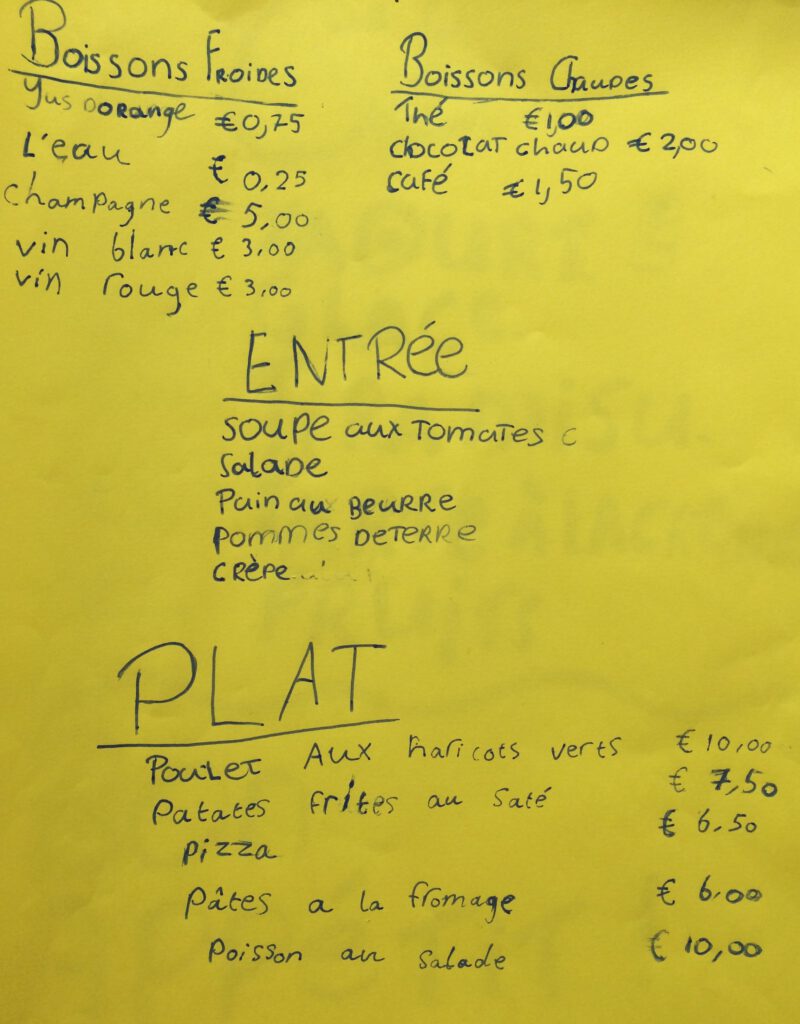 BOISSONS FROIDES
Yus DORANGE €0,75
L'eau € 0,25
champagne € 5,00
vin blanc € 3,00
vin rouge € 3,00
BOISSONS CHAUDES
Thé €1,00
chocolat chaud € 2,00
café €1,50
ENTRÉE
SOUPE aux TOMATES C
SalaDe
Pain au BEURRE
POMMES DETERRE
CRÈPE
PLAT
POULET AUX haricots verts € 10,00
Patates frites au saté € 7,50
pizza € 6.50
Pâtes a la fromage € 6.00
Poisson au salade € 10,00